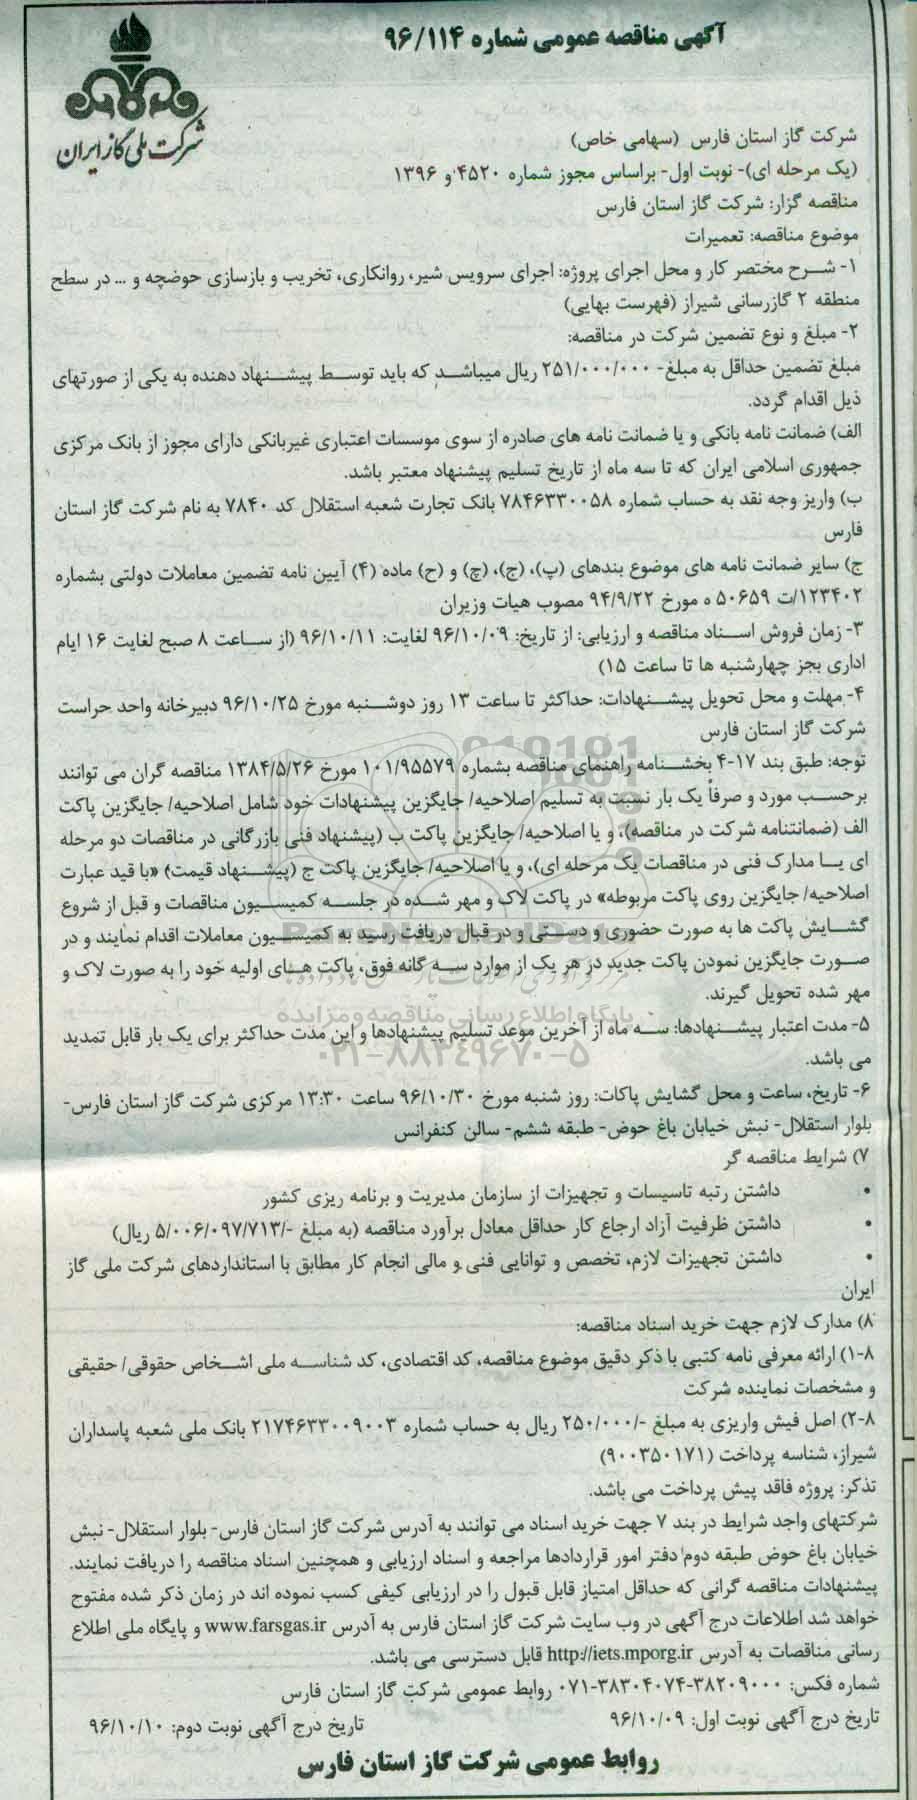 آگهی مناقصه عمومی شماره ۹۶/۱۱۴
شرکت ملی گاز ایران
شرکت گاز استان فارس (سهامی خاص)
(یک مرحله ای)- نوبت اول- براساس مجوز شماره ۴۵۲۰ و ۱۳۹۶
مناقصه گزار: شرکت گاز استان فارس
موضوع مناقصه: تعمیرات
۱- شرح مختصر کار و محل اجرای پروژه: اجرای سرویس شیر، روانکاری، تخریب و بازسازی حوضچه و ... در سطح
منطقه ۲ گازرسانی شیراز (فهرست بهایی)
۲- مبلغ و نوع تضمین شرکت در مناقصه:
مبلغ تضمین حداقل به مبلغ- ۲۵۱/۰۰۰/۰۰۰ ریال میباشد که باید توسط پیشنهاد دهنده به یکی از صورتهای
ذیل اقدام گردد.
الف) ضمانت نامه بانکی و یا ضمانت نامه های صادره از سوی موسسات اعتباری غیربانکی دارای مجوز از بانک مرکزی
جمهوری اسلامی ایران که تا سه ماه از تاریخ تسلیم پیشنهاد معتبر باشد.
ب) واریز وجه نقد به حساب شماره ۷۸۴۶۳۳۰۰۵۸ بانک تجارت شعبه استقلال کد ۷۸۴۰ به نام شرکت گاز استان
فارس
ج) سایر ضمانت نامه های موضوع بندهای (پ)، (ج)، (چ) و (ح) ماده (۴) آیین نامه تضمین معاملات دولتی بشماره
۱۲۳۴۰۲/ت ۵۰۶۵۹ ه مورخ ۹۴/۹/۲۲ مصوب هیات وزیران
۳- زمان فروش اسناد مناقصه و ارزیابی: از تاریخ: ۹۶/۱۰/۰۹ لغایت: ۹۶/۱۰/۱۱ (از ساعت ۸ صبح لغایت ۱۶ ایام
اداری بجز چهارشنبه ها تا ساعت ۱۵)
۴- مهلت و محل تحویل پیشنهادات: حداکثر تا ساعت ۱۳ روز دوشنبه مورخ ۹۶/۱۰/۲۵ دبیرخانه واحد حراست
شرکت گاز استان فارس
توجه: طبق بند ۱۷-۴ بخشنامه راهنمای مناقصه بشماره ۱۰۱/۹۵۵۷۹ مورخ ۱۳۸۴/۵/۲۶ مناقصه گران می توانند
برحسب مورد و صرفاً یک بار نسبت به تسلیم اصلاحیه/ جایگزین پیشنهادات خود شامل اصلاحیه/ جایگزین پاکت
الف (ضمانتنامه شرکت در مناقصه)، و یا اصلاحیه/ جایگزین پاکت ب (پیشنهاد فنی بازرگانی در مناقصات دو مرحله
ای یا مدارک فنی در مناقصات یک مرحله ای)، و یا اصلاحیه/ جایگزین پاکت ج (پیشنهاد قیمت) «با قید عبارت
اصلاحیه/ جایگزین روی پاکت مربوطه» در پاکت لاک و مهر شده در جلسه کمیسیون مناقصات و قبل از شروع
گشایش پاکت ها به صورت حضوری و دستی و در قبال دریافت رسید به کمیسیون معاملات اقدام نمایند و در
صورت جایگزین نمودن پاکت جدید در هر یک از موارد سه گانه فوق، پاکت های اولیه خود را به صورت لاک و
مهر شده تحویل گیرند.
پایگاه اطلاع رسانی مناقصه و مزایده
۵- مدت اعتبار پیشنهادها: سه ماه از آخرین موعد تسلیم پیشنهادها و این مدت حداکثر برای یک بار قابل تمدید
می باشد.
۰۲۱-۸۸۳۴۹۶۷۰-۵
۶- تاریخ، ساعت و محل گشایش پاکات: روز شنبه مورخ ۹۶/۱۰/۳۰ ساعت ۱۳:۳۰ مرکزی شرکت گاز استان فارس-
بلوار استقلال- نبش خیابان باغ حوض- طبقه ششم- سالن کنفرانس
۷) شرایط مناقصه گر
• داشتن رتبه تاسیسات و تجهیزات از سازمان مدیریت و برنامه ریزی کشور
• داشتن ظرفیت آزاد ارجاع کار حداقل معادل برآورد مناقصه (به مبلغ -/۵/۰۰۶/۰۹۷/۷۱۳ ریال)
• داشتن تجهیزات لازم، تخصص و توانایی فنی و مالی انجام کار مطابق با استانداردهای شرکت ملی گاز
ایران
۸) مدارک لازم جهت خرید اسناد مناقصه:
۸-۱) ارائه معرفی نامه کتبی با ذکر دقیق موضوع مناقصه، کد اقتصادی، کد شناسه ملی اشخاص حقوقی/ حقیقی
و مشخصات نماینده شرکت
۸-۲) اصل فیش واریزی به مبلغ -/۲۵۰/۰۰۰ ریال به حساب شماره ۲۱۷۴۶۳۳۰۰۹۰۰۳ بانک ملی شعبه پاسداران
شیراز، شناسه پرداخت (۹۰۰۳۵۰۱۷۱)
تذکر: پروژه فاقد پیش پرداخت می باشد.
شرکتهای واجد شرایط در بند ۷ جهت خرید اسناد می توانند به آدرس شرکت گاز استان فارس- بلوار استقلال- نبش
خیابان باغ حوض طبقه دوم دفتر امور قراردادها مراجعه و اسناد ارزیابی و همچنین اسناد مناقصه را دریافت نمایند.
پیشنهادات مناقصه گرانی که حداقل امتیاز قابل قبول را در ارزیابی کیفی کسب نموده اند در زمان ذکر شده مفتوح
خواهد شد اطلاعات درج آگهی در وب سایت شرکت گاز استان فارس به آدرس www.farsgas.ir و پایگاه ملی اطلاع
رسانی مناقصات به آدرس http://iets.mporg.ir قابل دسترسی می باشد.
شماره فکس: ۳۸۲۰۹۰۰۰-۳۸۳۰۴۰۷۴-۰۷۱ روابط عمومی شرکت گاز استان فارس
تاریخ درج آگهی نوبت اول: ۹۶/۱۰/۰۹ تاریخ درج آگهی نوبت دوم: ۹۶/۱۰/۱۰
روابط عمومی شرکت گاز استان فارس